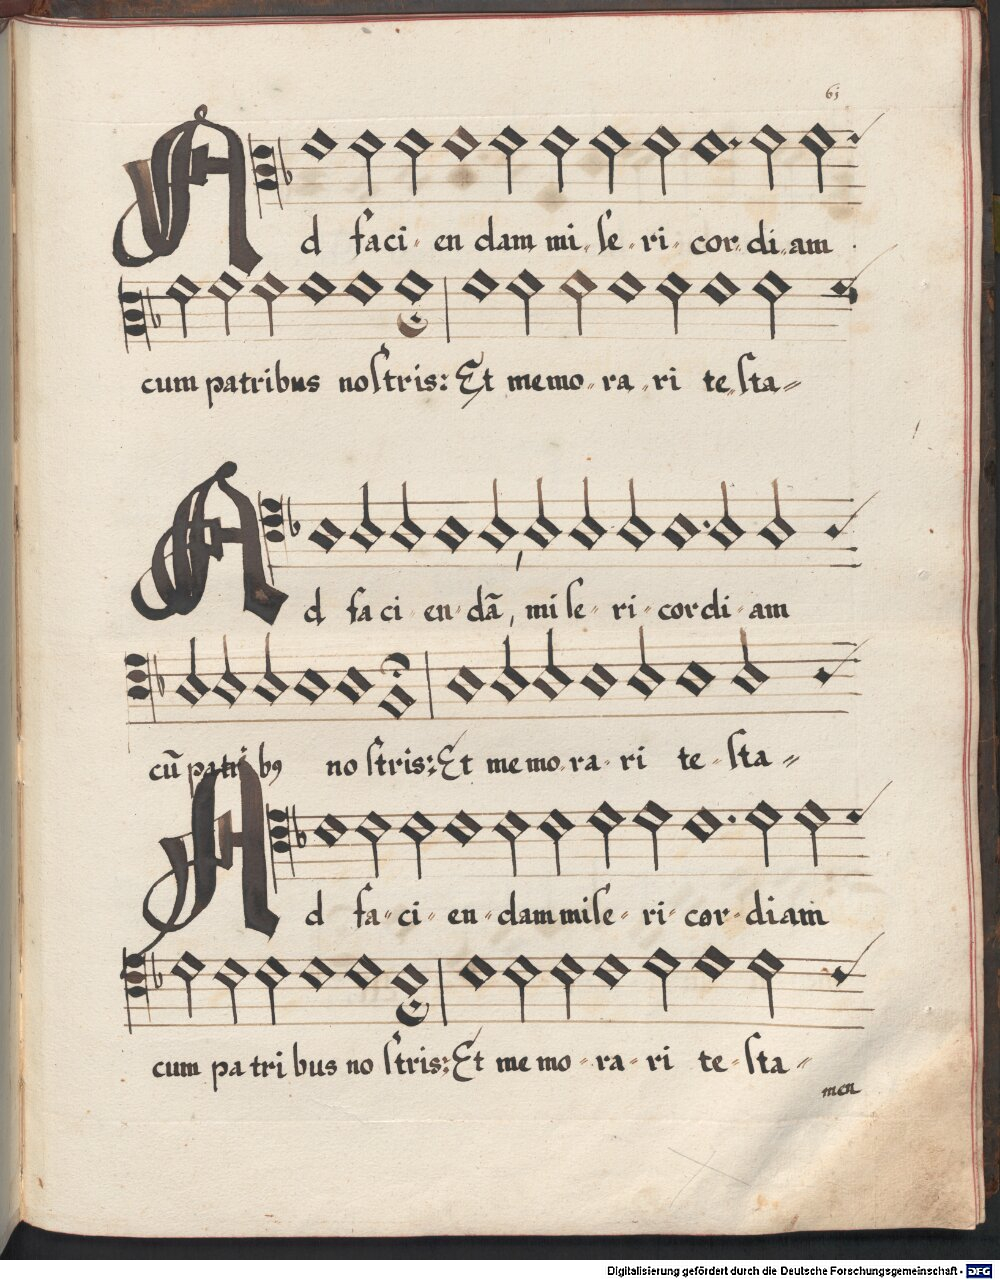 61
Ad faci- en dam mi- se- ri- cor- di- am
cum patribus nostris: Et memo- ra- ri te- sta-
Ad faci- en- dã, mi se- ri- cordi- am
cũ patri bꝰ no stris: Et memo- ra- ri te- sta-
Ad fa- ci- en- dam mise- ri- cor- diam
cum pa tri bus no stris: Et me mo- ra- ri te- sta-
men
Digitalisierung gefördert durch die Deutsche Forschungsgemeinschaft - DFG